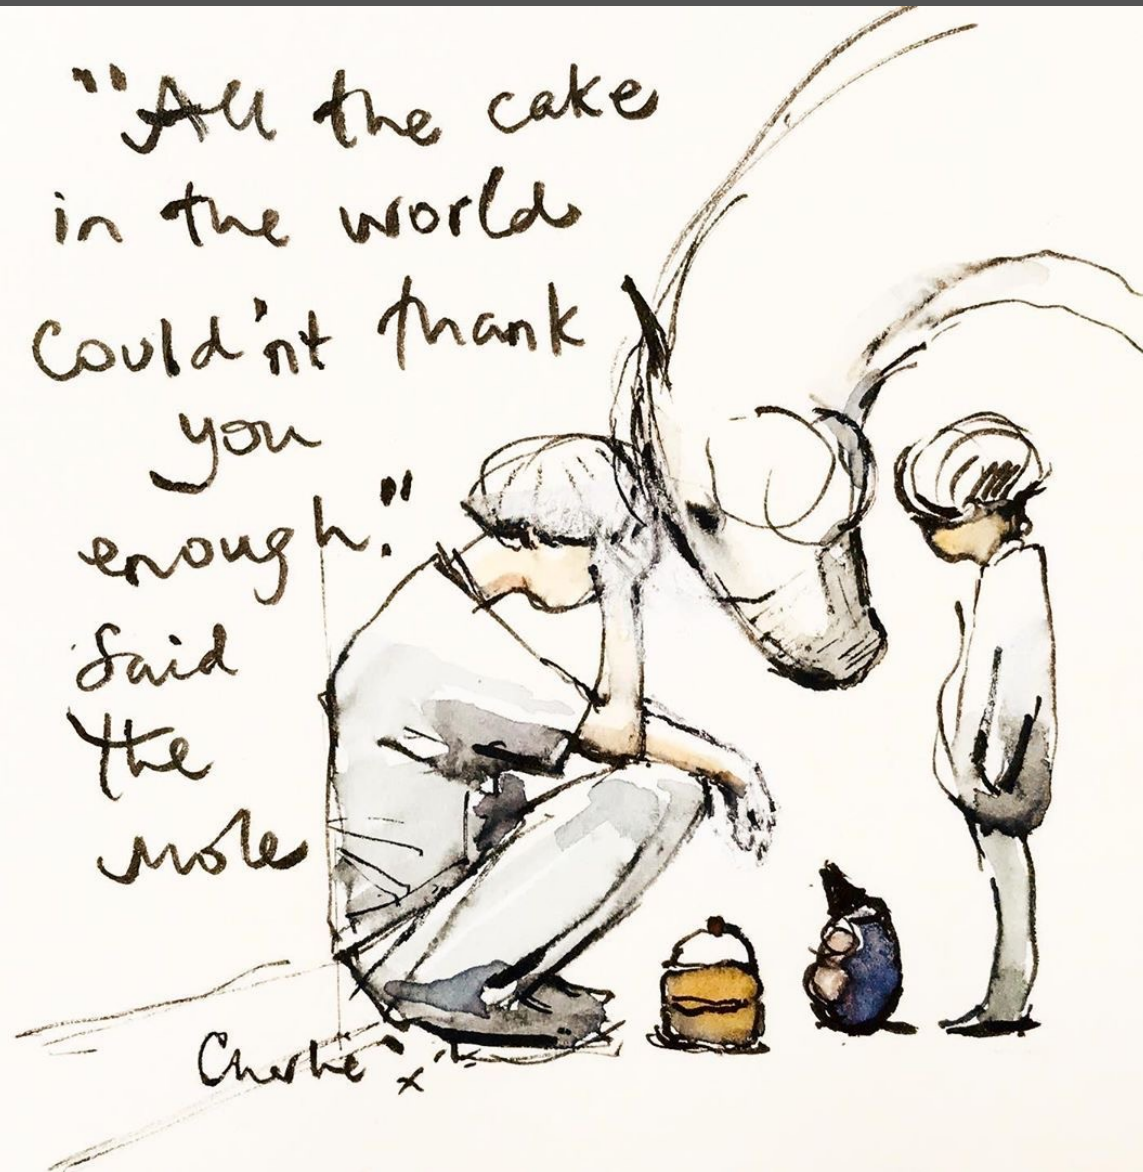 "All the cake
in the world
Could'nt thank
you
enough."
Said
the
Mole
Charlie x